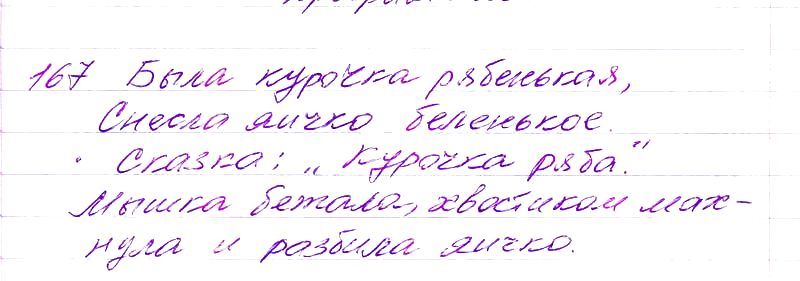 167 Была курочка рябенькая,
Снесла яичко беленькое.
Сказка: „Курочка ряба."
Мышка бежала, хвостиком мах-
нула и разбила яичко.